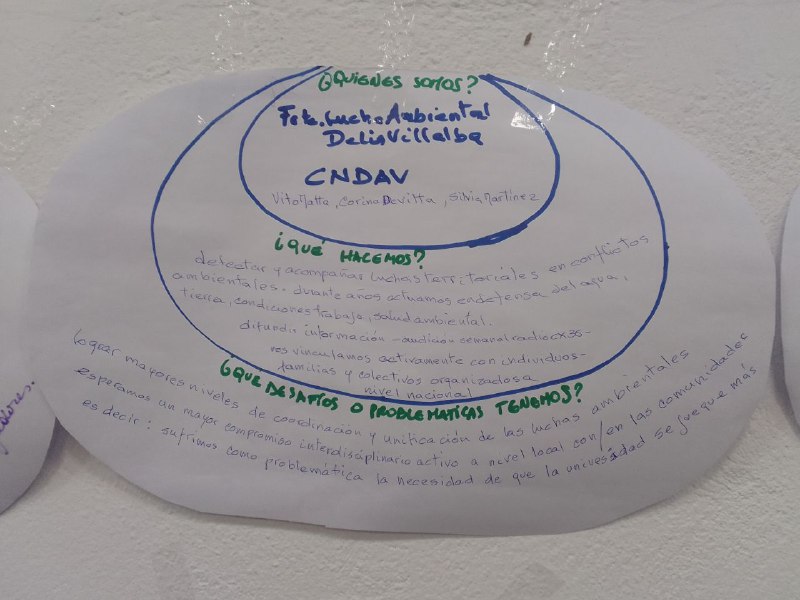 ¿QUIENES SOMOS?
Frte. Lucha Ambiental
Delia Villalba
CNDAV
Vito Matta, Corina Devitta, Silvia Martinez
¿QUÉ HACEMOS?
detectar y acompañar luchas territoriales en conflictos
ambientales. durante años actuamos en defensa del agua,
tierra, condiciones trabajo, salud ambiental.
difundir información - audición semanal radio CX36 -
nos vinculamos activamente con individuos -
familias y colectivos organizados a
nivel nacional
¿QUÉ DESAFÍOS O PROBLEMATICAS TENEMOS?
lograr mayores niveles de coordinación y unificación de las luchas ambientales
esperamos un mayor compromiso interdisciplinario activo a nivel local con/en las comunidades
es decir: sufrimos como problemática la necesidad de que la universidad se juegue más